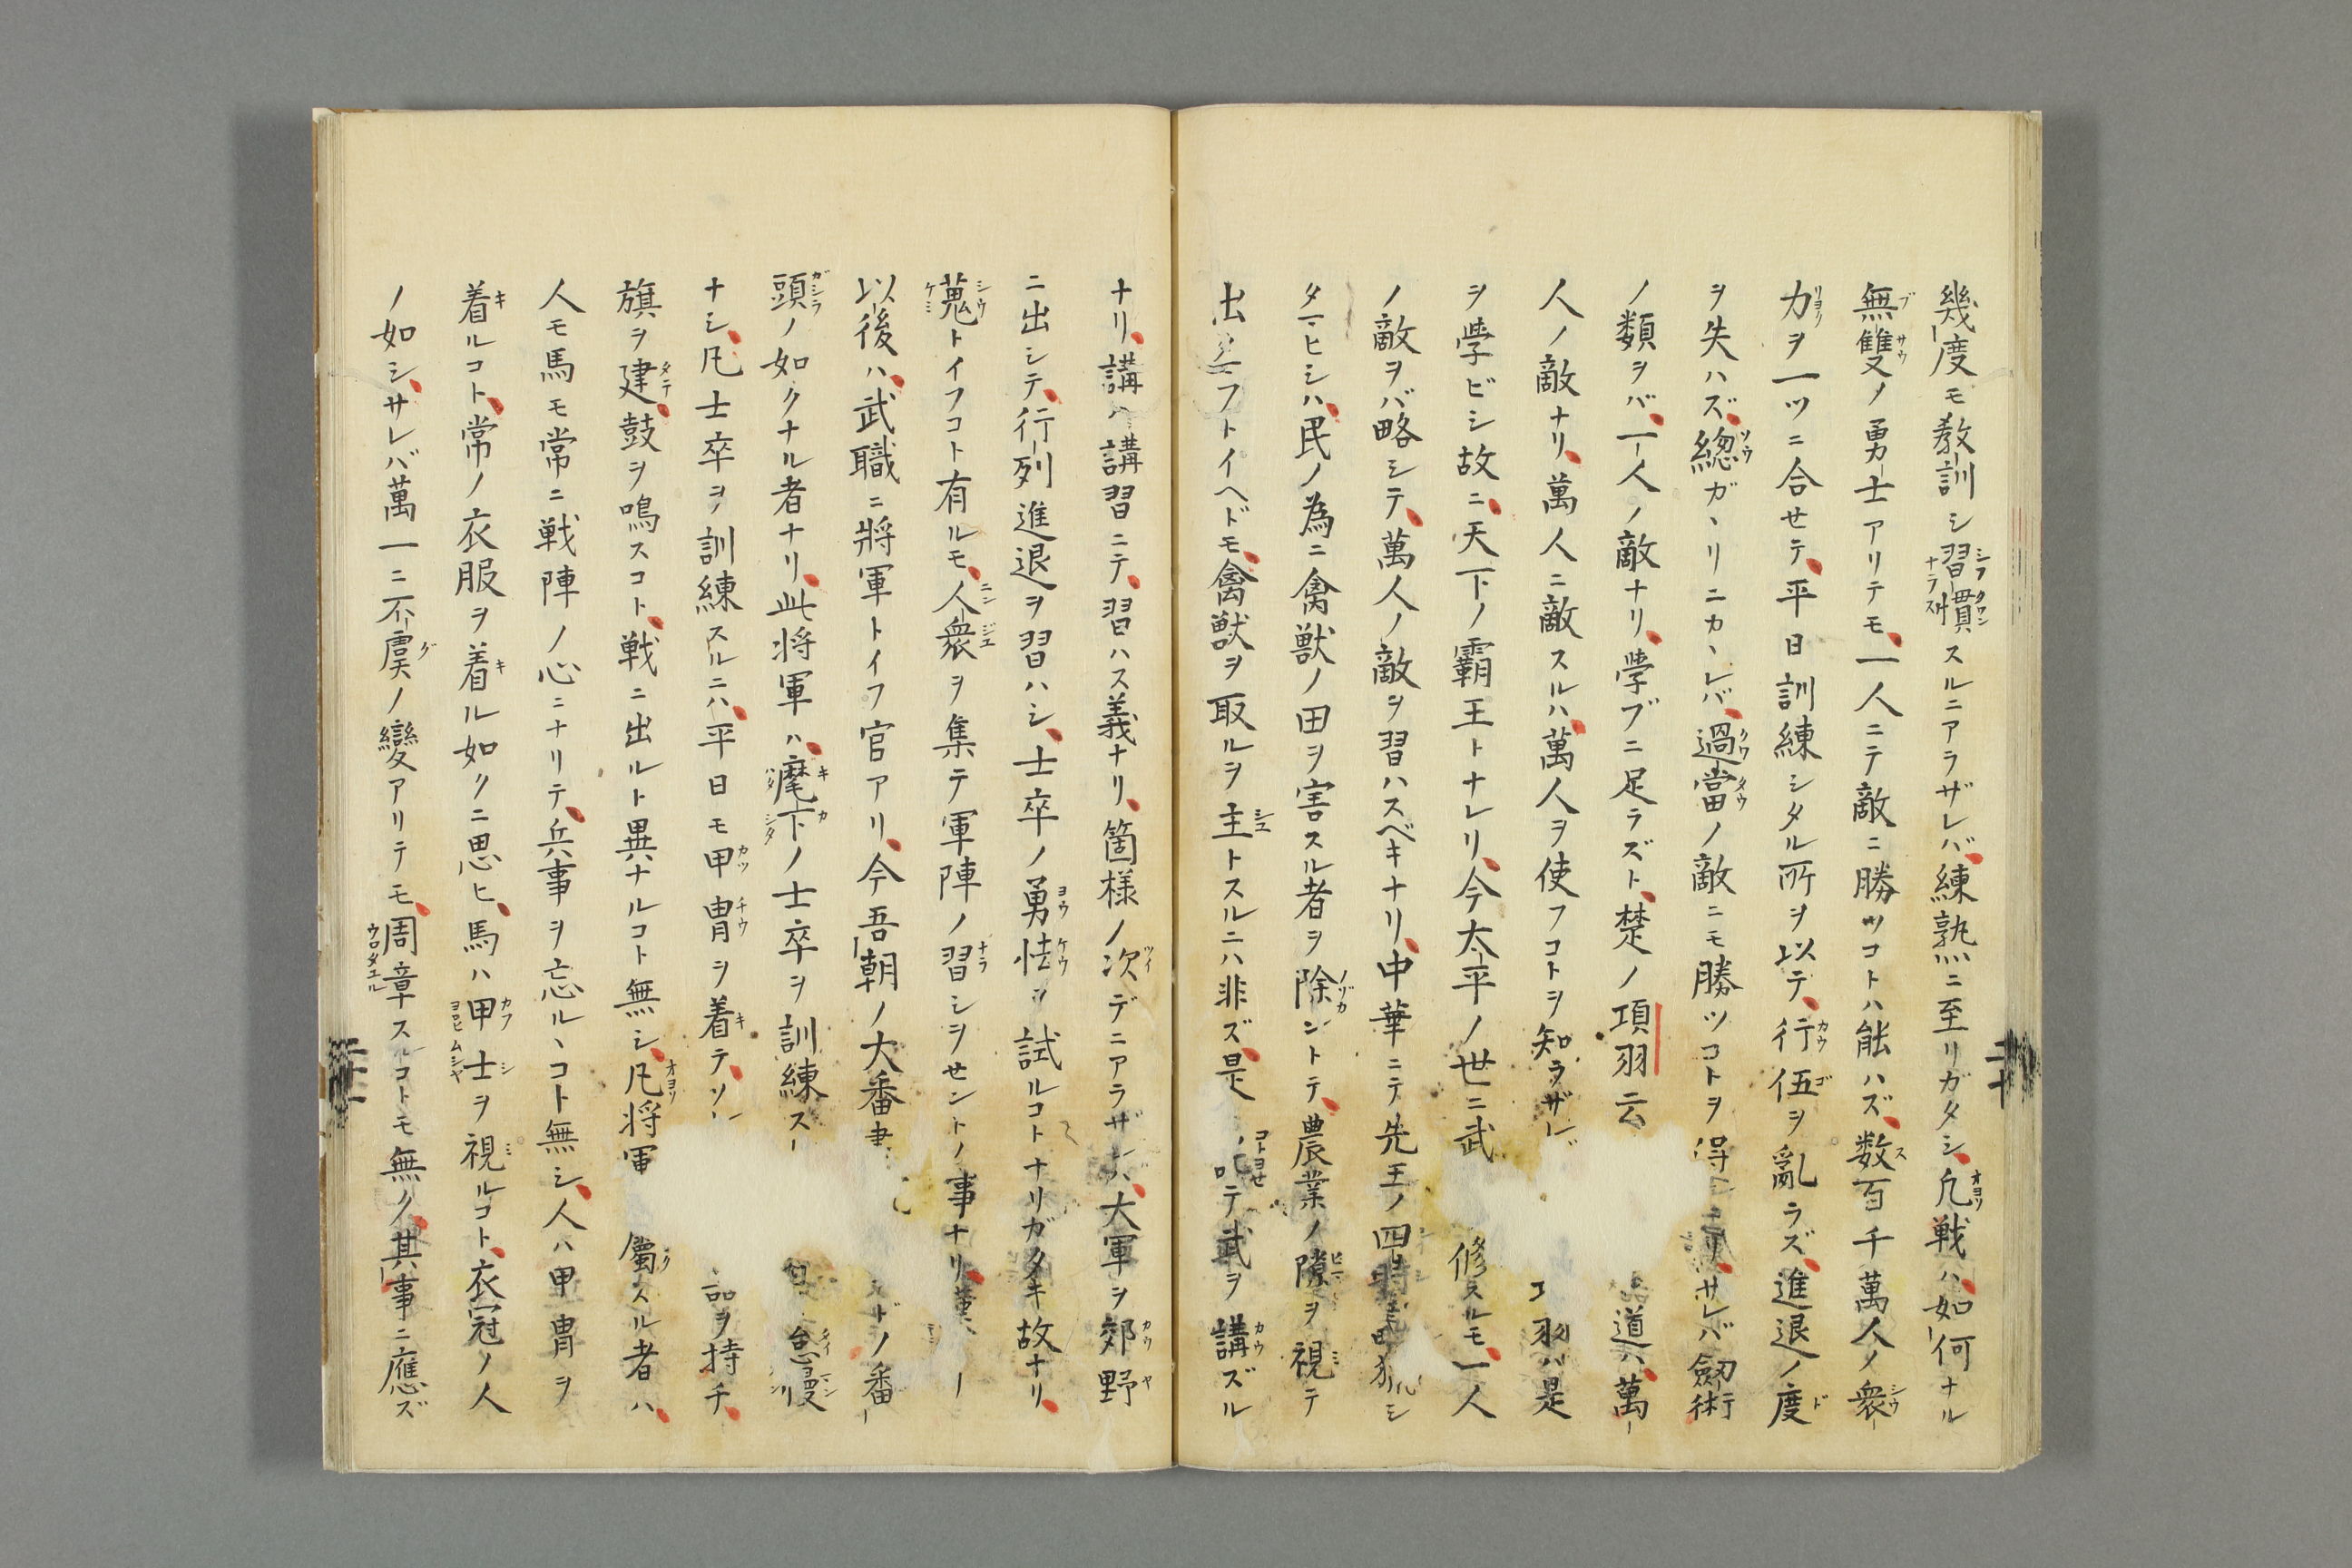 幾度モ教訓シ習慣スルニアラザレバ、練熟ニ至リガタシ、凡戦ハ、如何ナル
無雙ノ勇士アリテモ、一人ニテ敵ニ勝ツコトハ能ハズ、数百千萬人ノ衆
力ヲ一ツニ合せテ、平日訓練シタル所ヲ以テ、行伍ヲ亂ラズ、進退ノ度
ヲ失ハズ、總ガヽリニカヽレバ、過當ノ敵ニモ勝ツコトヲ得 サレバ劔術
ノ類ヲバ、一人ノ敵ナリ、学ブニ足ラズト、楚ノ項羽云 道ハ、萬
人ノ敵ナリ、萬人ニ敵スルハ、萬人ヲ使フコトヲ知ラザレ 羽ハ是
ヲ学ビシ故ニ、天下ノ霸王トナレリ、今太平ノ世ニ武 修スルモ、一人
ノ敵ヲバ略シテ、萬人ノ敵ヲ習ハスベキナリ、中華ニテ先王ノ四時
タマヒシハ、民ノ為ニ禽獣ノ田ヲ害スル者ヲ除ントテ、農業ノ隙ヲ視テ
出 フトイヘドモ、禽獣ヲ取ルヲ主トスルニハ非ズ、是 テ武ヲ講ズル
ナリ、講ハ講習ニテ、習ハス義ナリ、箇様ノ次デニアラザレバ、大軍ヲ郊野
ニ出シテ、行列進退ヲ習ハシ、士卒ノ勇怯ヲ試ルコトナリガタキ故ナリ、
蒐トイフコト有ルモ、人衆ヲ集テ軍陣ノ習シヲせントノ事ナリ、
以後ハ、武職ニ將軍トイフ官アリ、今吾朝ノ大番 ノ番
頭ノ如クナル者ナリ、此将軍ハ、麾下ノ士卒ヲ訓練ス 怠慢
ナシ、凡士卒ヲ訓練スルニハ、平日モ甲冑ヲ着テ、 ヲ持チ、
旗ヲ建、鼓ヲ鳴スコト、戦ニ出ルト異ナルコト無シ、凡将軍 屬スル者ハ、
人モ馬モ常ニ戦陣ノ心ニナリテ、兵事ヲ忘ルヽコト無シ、人ハ甲冑ヲ
着ルコト、常ノ衣服ヲ着ル如クニ思ヒ、馬ハ甲士ヲ視ルコト、衣冠ノ人
ノ如シ、サレバ萬一ニ不虞ノ變アリテモ、周章スルコトモ無ク、其事ニ應ズ